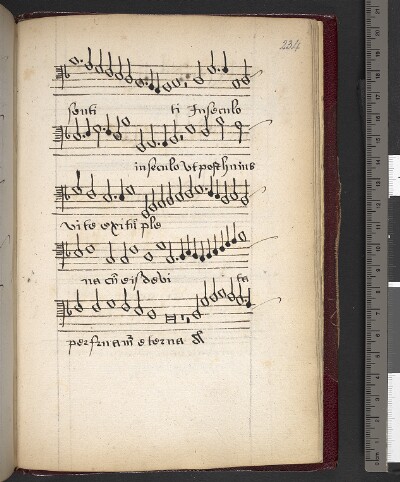 234
senti ti Inseculo
inseculo vt posthuius
vite exitũ ple
na cũ eis debi ta
perfruamr̃ eterna